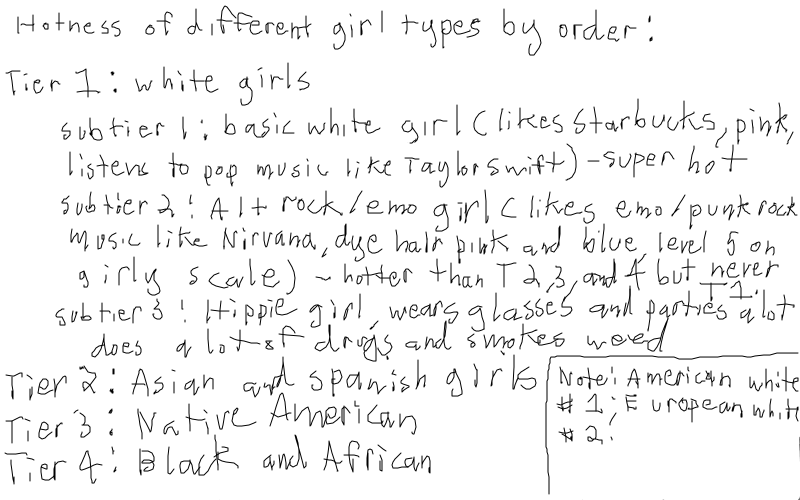 Hotness of different girl types by order:
Tier 1: white girls
subtier 1: basic white girl (likes Starbucks, pink,
listens to pop music like Taylor Swift) - super hot
subtier 2: Alt rock/emo girl (likes emo/punk rock
music like Nirvana, dye hair pink and blue, level 5 on
girly scale) ~ hotter than T2,3, and 4 but never
T1.
subtier 3: Hippie girl, wears glasses and parties a lot
does a lot of drugs and smokes weed
Tier 2: Asian and spanish girls
Tier 3: Native American
Tier 4: Black and African
Note: American white
# 1; European white
# 2.